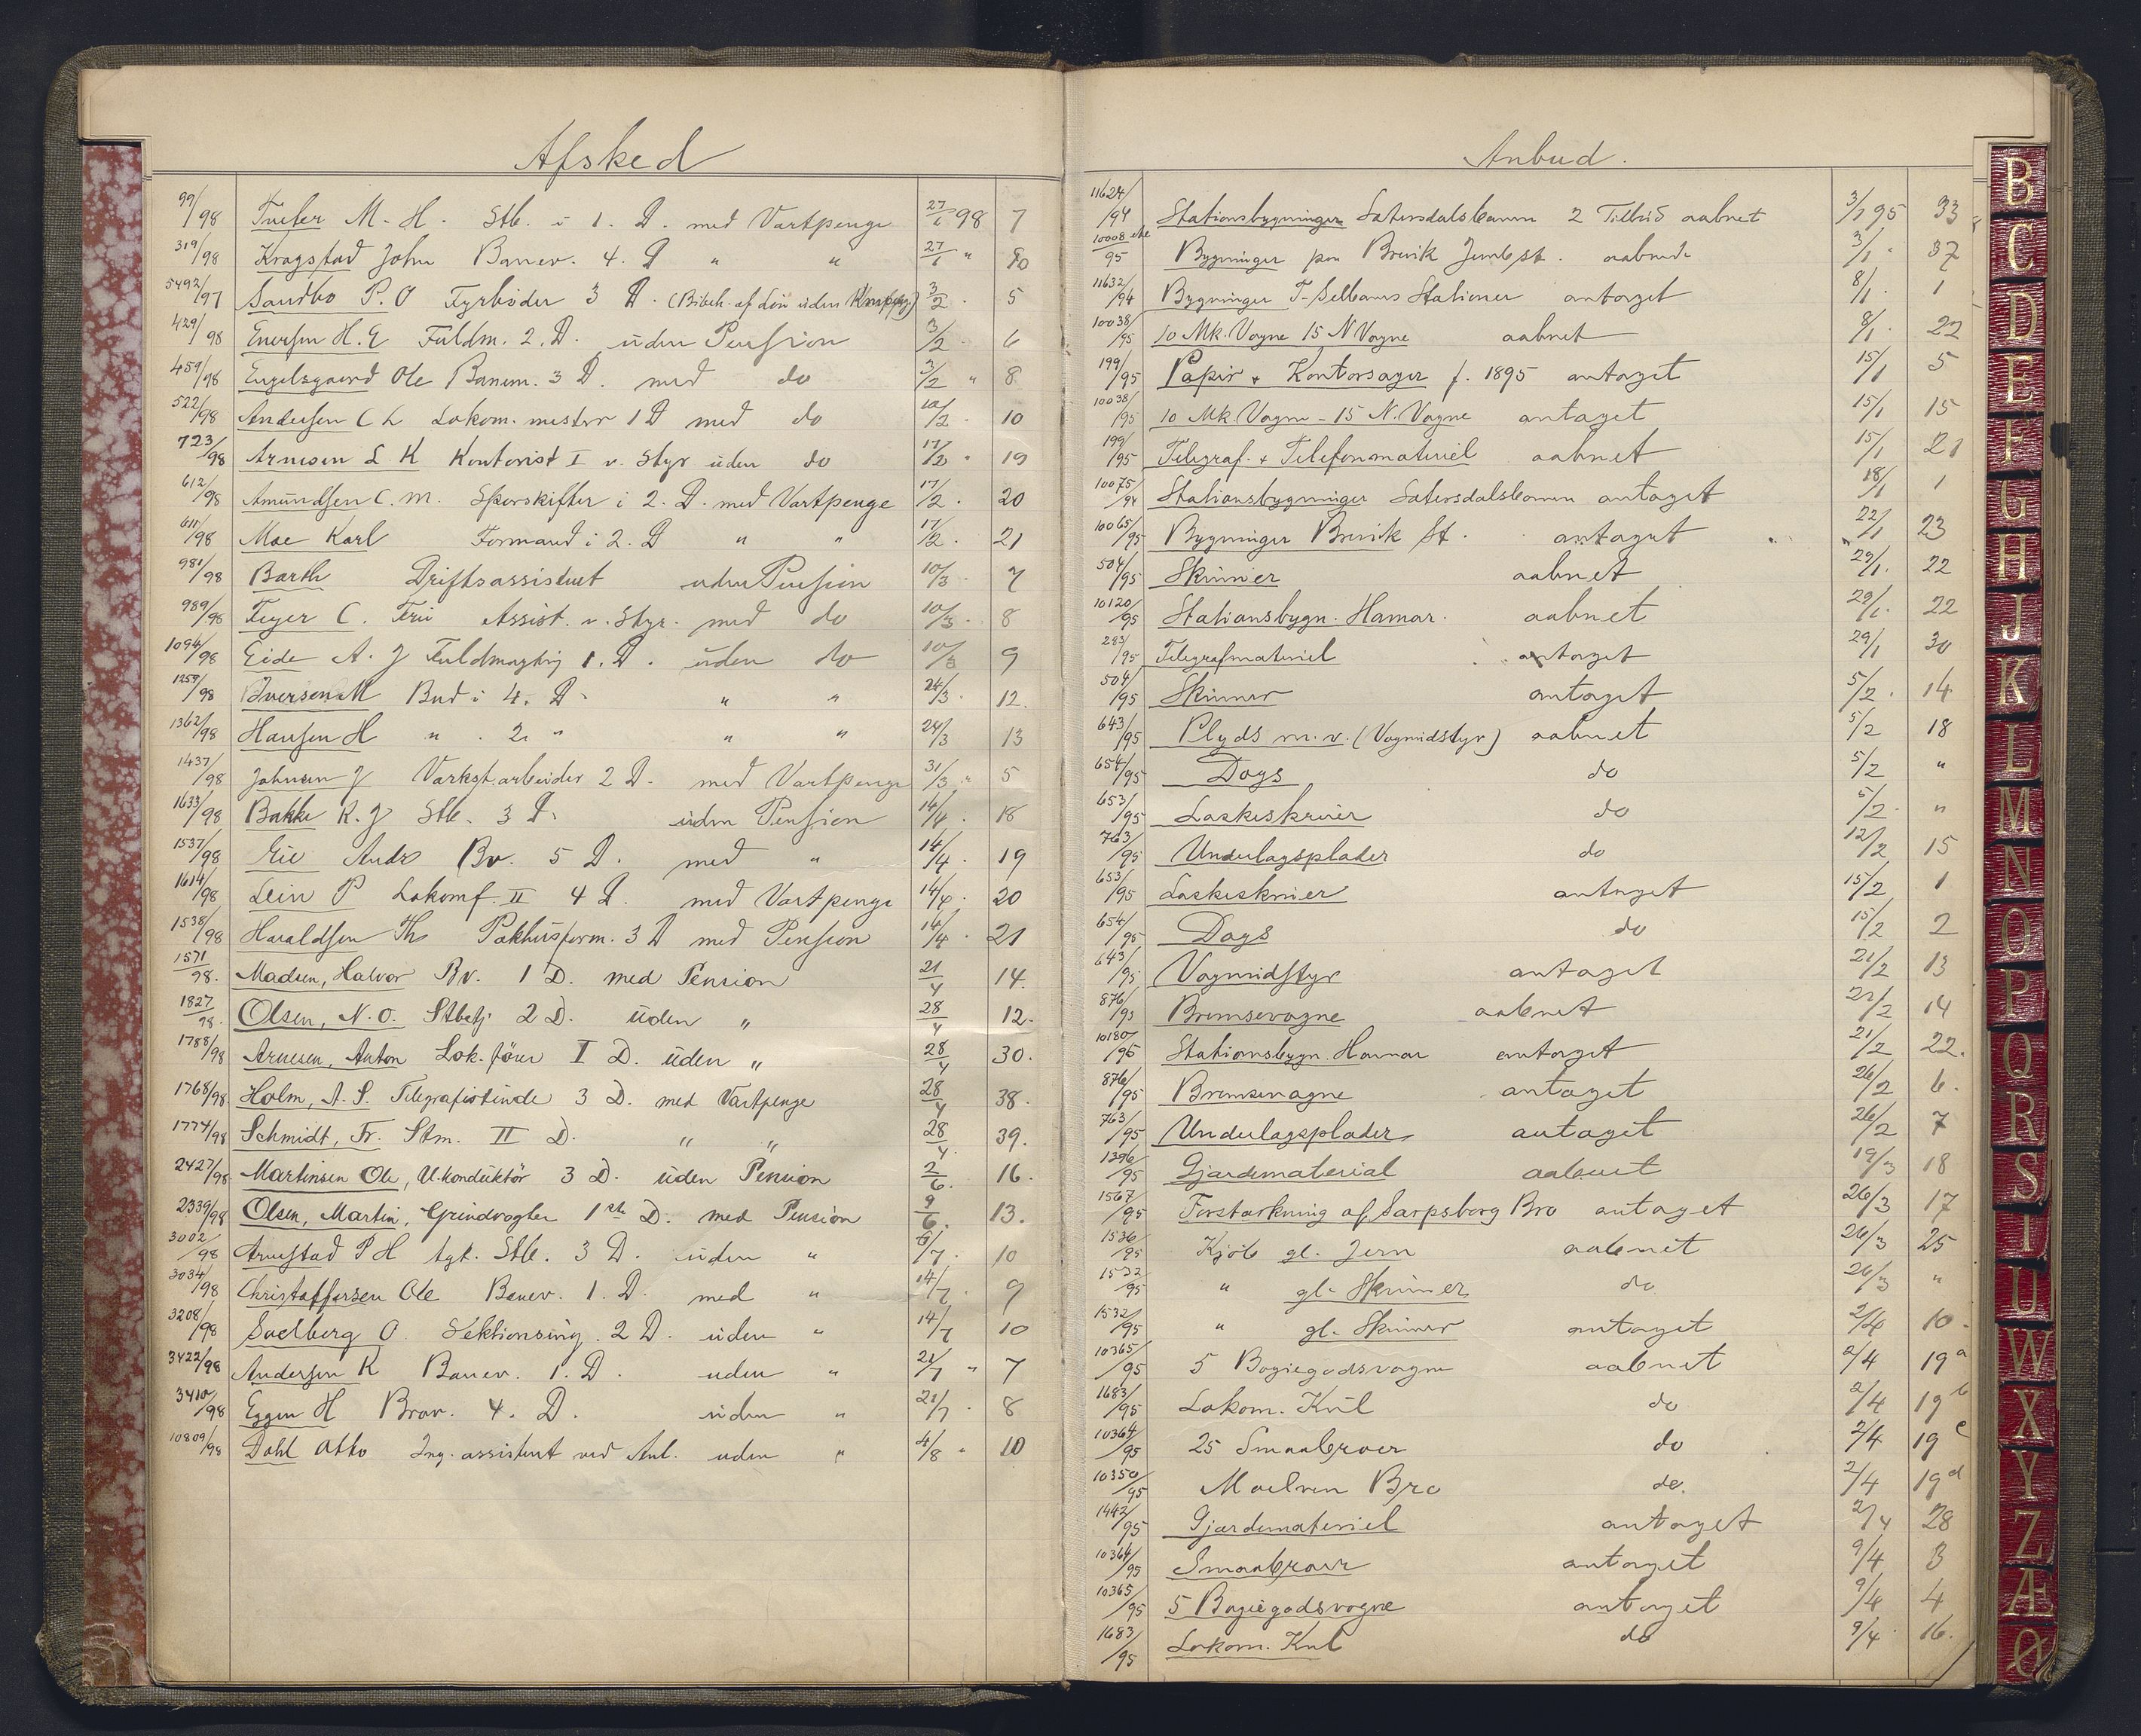 Afsked
99/98 M. H. Stb. i 1. D. med Vartpenge 27/1 98 7
319/98 Kragstad John Banev. 4. D " " 27/1 " 10
5492/97 Sandbo P. O Fyrbøder 3 D. (Bibeh. af Løn uden 3/2 . 5
429/98 Enersen H. E Fuldm. 2. D. uden Pension 3/2 . 6
459/98 Engelsgaard Ole Banem. 3 D. med do 3/2 " 8
522/98 Andersen C L Lokom. mester 1 D med do 10/2 . 10
723/98 Arnesen L K Kontorist I v. Styr uden do 17/2 " 19
612/98 Amundsen C. M. Sporskifter i 2. D. med Vartpenge 17/2 . 20
611/98 Moe Karl Formand i 2. D " " 17/2 . 21
981/98 Barth Driftsassistent uden Pension 10/3 . 7
989/98 Feyer C. Frü Assist. v. Styr. med do 10/3 . 8
1094/98 Eide A. J Fuldmægtig 1. D. uden do 10/3 9
1259/98 Iversen M Bud i 4. D. " " 24/3 . 12.
1362/98 Hansen H " . 2. " " " 24/3 13
1437/98 Johnsen J Værkst. arbeider 2 D. med Vartpenge 31/3 " 5
1633/98 Bakke K. J Stb. 3 D. uden Pension 14/4 . 18
1537/98 Lie Andr Bv. 5 D. med " 14/4 . 19
1614/98 Lein P Lokomf. II 4 D. med Vartpenge 14/4 . 20
1538/98 Haraldsen Th Pakhusform. 3 D med Pension 14/4 . 21
1571/98. Madsen, Halvor Bv. 1 D. med Pension 21/4 14.
1827/98. Olsen, N. O. Stbetj. 2 D. uden " 28/4 12.
1788/98 Arnesen, Anton Lok. förer I D. uden " 28/4 30.
1768/98 Holm, A. S. Telegrafistinde 3 D. med Vartpenge 28/4 38.
1774/98 Schmidt, Fr. Stm. II D. " " 28/4. 39.
2427/98 Martinsen Ole, U.konduktör 3 D. uden Pension 2/6. 16.
2339/98 Olsen, Martin, Grindvogter 1ste D. med Pension 9/6. 13.
3002/98 Arnestad P H tgt. Stb. 3 D. uden " 6/7 . 10
3034/98 Christoffersen Ole Banev. 1. D. med " 14/7 . 9
3208/98 Soelberg O. Sektionsing. 2 D. uden " 14/7 10
3422/98 Andersen K Banev. 1. D. uden " 21/7 " 7
3410/98 Eggen H Brav. 4. D. uden " 21/7 . 8
10809/98 Dahl Otto Ing. assistent ved Anl. uden " 4/8 " 10
Anbud.
11624/94 Stationsbygninger Sætersdalsbanen 2 Tilbud aabnet 3/1 95 33
10008/95 Bygninger paa Brevik Jernbst. aabnede 3/1 . 37
11632/94 Bygninger T-Selbans Stationer antaget 8/1 . 1
10038/95 10 Mk. Vogne 15 N Vogne aabnet 8/1 . 22
199/95 Papir & Kontorsager f. 1895 antaget 15/1 5
10038/95 10 Mk. Vogn - 15 N. Vogne antaget 15/1 15
199/95 Telegraf. & Telefonmateriel aabnet 15/1 21
10075/94 Stationsbygninger Sætersdalsbanen antaget 18/1 1
10065/95 Bygninger Brevik St. antaget 22/1 23
504/95 Skinner aabnet 29/1. 22
10120/95 Stationsbygn. Hamar. aabnet 29/1. 22
283/95 Telegrafmateriel antaget 29/1 30
504/95 Skinner antaget 5/2 . 14
643/95 Plyds m. v. (Vognudstyr) aabnet 5/2 18
654/95 Dogs do 5/2 "
653/95 Laskeskruer do 5/2 . "
763/95 Underlagsplader do 12/2 15
653/95 Laskeskruer antaget 15/2 1
654/95 Dogs do 15/2 2
643/95 Vognudstyr antaget 21/2 13
876/95 Bremsevogne aabnet 21/2 14
10180/95 Stationsbygn. Hamar antaget 21/2 22.
876/95 Bremsevogne antaget 26/2 6.
763/95 Underlagsplader antaget 26/2 7
1396/95 Gjærdematerial aabnet 19/3 18
1567/95 Forstærkning af Sarpsborg Bro antaget 26/3 17
1536/95 Kjöb gl. Jern aabnet 26/3 25
1532/95 " gl. Skinner do 26/3 "
1532/95 " gl. Skinner antaget 2/4 10.
10365/95 5 Bogiegodsvogne aabnet 2/4 19a
1683/95 Lokom. Kul do 2/4 19b
10364/95 25 Smaabroer do 2/4 19c
10350/95 Moelven Bro do. 2/4 19d
1442/95 Gjærdemateriel antaget 2/4 28
10364/95 Smaabroer antaget 9/4 3
10365/95 5 Bogiegodsvogne antaget 9/4 4
1683/95 Lokom. Kul do 9/4 16.
B
C
D
E
F
G
H
J
K
L
M
N
O
P
Q
R
S
T
U
W
X
Y
Z
Æ
Ø